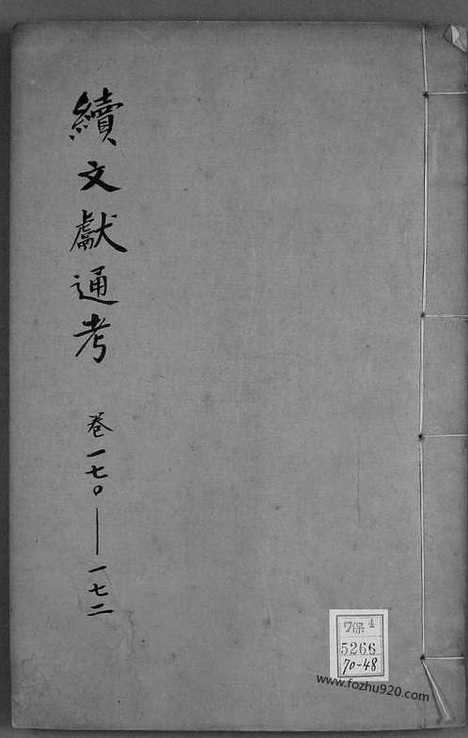 續文獻通考 卷一七〇——一七二
7保4
5266
70-48
www.fozhu920.com